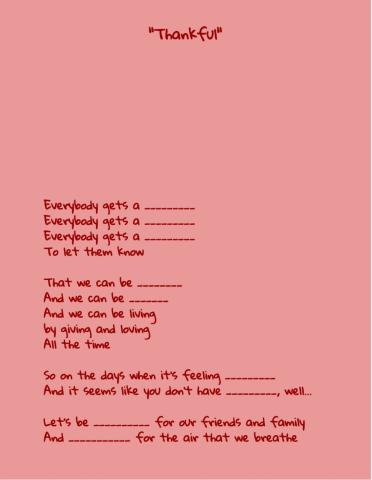 "Thankful"
Everybody gets a _________
Everybody gets a _________
Everybody gets a _________
To let them know
That we can be ________
And we can be _______
And we can be living
by giving and loving
All the time
So on the days when it's feeling _________
And it seems like you don't have _________, well...
Let's be __________ for our friends and family
And ___________ for the air that we breathe